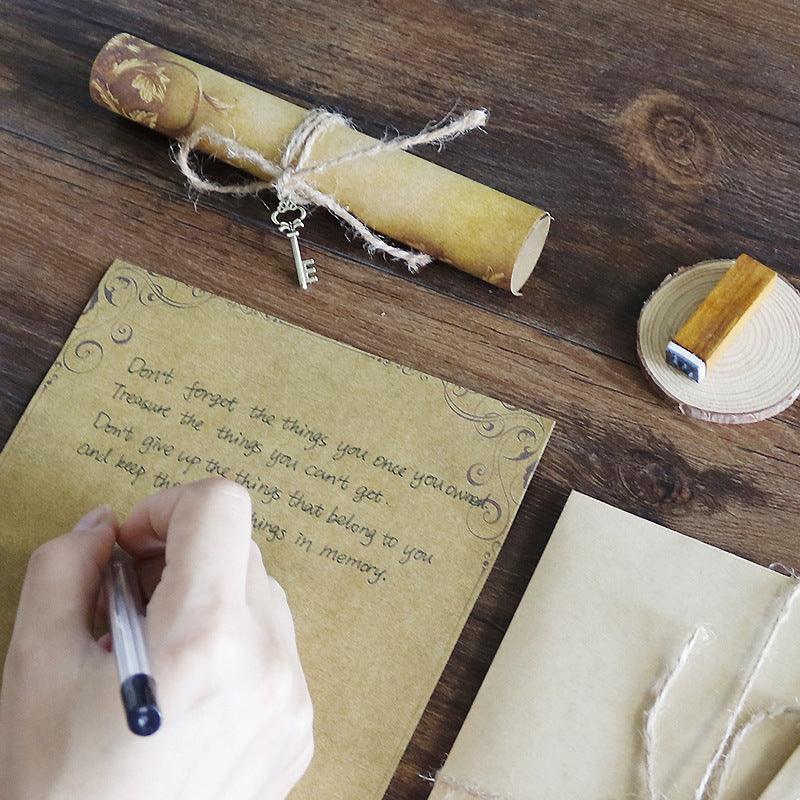 Don't forget the things you once you owned.
Treasure the things you can't get.
Don't give up the things that belong to you
and keep things in memory.